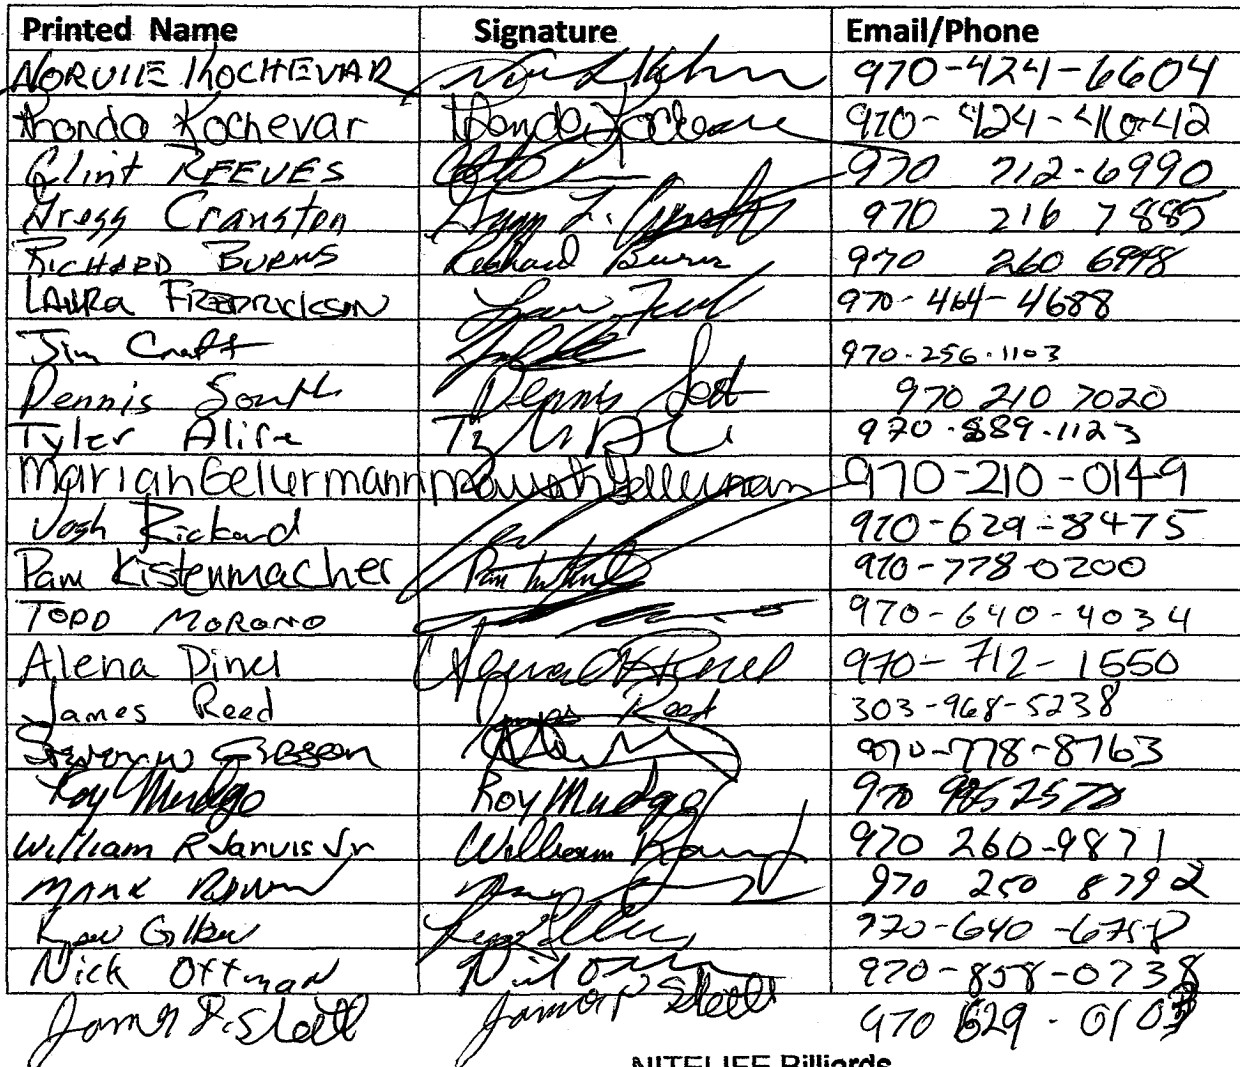 Printed Name Signature Email/Phone
NORVILE KOCHEVAR 970-424-6604
Rhonda Kochevar Rhonda Kochevar 970-424-
Clint REEVES 970 712-6990
Gregg Cranston 970 216 7885
RICHARD BURNS Richard Burns 970 260 6998
LAURA FREDRICKSON 970-464-4688
Jim Craft 970-256-1103
Dennis South Dennis 970 210 7020
Tyler Alire 970-889-1123
Mariah Gellermann Mariah Gellermann 970-210-0149
Josh Rickard 970-629-8475
Pam Kistenmacher Pam 970-778-0200
TODD MORONO 970-640-4034
Alena Dinel 970-712-1550
James Reed James Reed 303-968-5238
970-778-8763
Roy Mudge Roy Mudge 970
William R Jarvis Jr William 970 260-9871
MARK 970 250 8792
970-640-6758
Nick Ottman Nick 970-858-0738
James P. 970 629-0103
NITELIFE Billiards